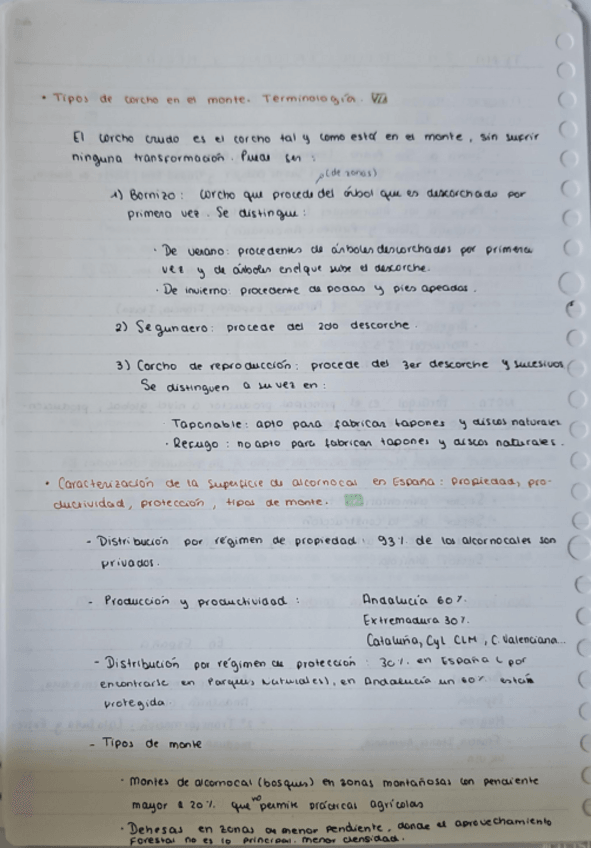 • Tipos de corcho en el monte. Terminología.
El corcho crudo es el corcho tal y como está en el monte, sin sufrir
ninguna transformación. Puede ser:
(de zonas)
1) Bornizo: corcho que procede del árbol que es descorchado por
primera vez. Se distingue:
· De verano: procedentes de árboles descorchados por primera
vez y de árboles en el que sube el descorche.
· De invierno: procedente de podas y pies apeados.
2) Segundero: procede del 2do descorche.
3) Corcho de reproducción: procede del 3er descorche y sucesivos
Se distinguen a su vez en:
· Taponable: apto para fabricar tapones y discos naturales
· Refugo: no apto para fabricar tapones y discos naturales.
• Caracterización de la superficie de alcornocal en España: propiedad, pro-
ductividad, protección, tipos de monte.
- Distribución por régimen de propiedad: 93% de los alcornocales son
privados.
- Producción y productividad: Andalucía 60%.
Extremadura 30%.
Cataluña, CyL CLM, C. Valenciana...
- Distribución por régimen de protección: 30% en España (por
encontrarse en Parques Naturales), en Andalucía un 60% está
protegida.
- Tipos de monte
· Montes de alcornocal (bosques) en zonas montañosas con pendiente
mayor a 20% que no permite prácticas agrícolas
· Dehesas en zonas de menor pendiente, donde el aprovechamiento
forestal no es lo principal. menor densidad.